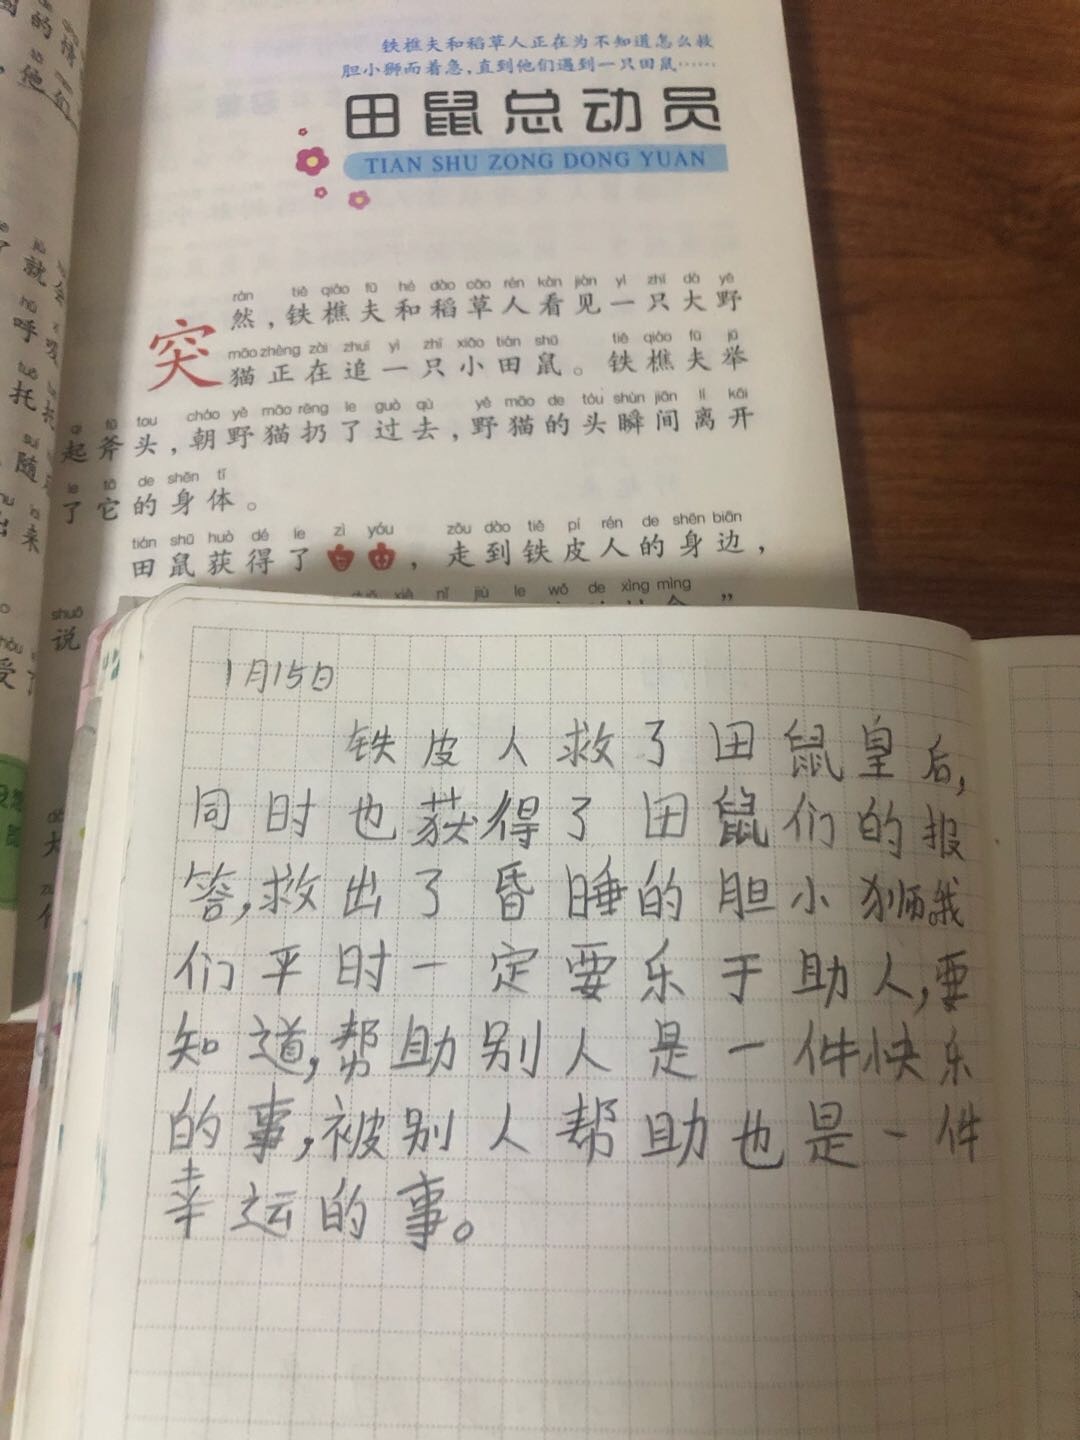 图的情
他们
就会
呼吸
托托
随
来
受
铁樵夫和稻草人正在为不知道怎么救
胆小狮而着急，直到他们遇到一只田鼠……
田鼠总动员
TIAN SHU ZONG DONG YUAN
rán tiě qiáo fū hé dào cǎo rén kàn jiàn yì zhī dà yě
突然，铁樵夫和稻草人看见一只大野
māo zhèng zài zhuī yì zhī xiǎo tián shǔ tiě qiáo fū jǔ
猫正在追一只小田鼠。铁樵夫举
qǐ fǔ tou cháo yě māo rēng le guò qù yě māo de tóu shùn jiān lí kāi
起斧头，朝野猫扔了过去，野猫的头瞬间离开
le tā de shēn tǐ
了它的身体。
tián shǔ huò dé le zì yóu zǒu dào tiě pí rén de shēn biān
田鼠获得了自由，走到铁皮人的身边，
shuō xiè nǐ jiù le wǒ de xìng mìng
说
1月15日
铁皮人救了田鼠皇后，
同时也获得了田鼠们的报
答，救出了昏睡的胆小狮我
们平时一定要乐于助人，要
知道，帮助别人是一件快乐
的事，被别人帮助也是一件
幸运的事。